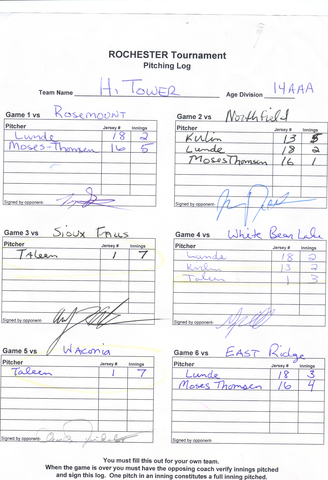 ROCHESTER Tournament
Pitching Log
Team Name Hi TOWER Age Division 14AAA
Game 1 vs Rosemount
Pitcher Jersey # Innings
Lunde 18 2
Moses-Thomsen 16 5
Signed by opponent:
Game 2 vs Northfield
Pitcher Jersey # Innings
Kulin 13 5
Lunde 18 2
Moses Thomsen 16 1
Signed by opponent:
Game 3 vs Sioux Falls
Pitcher Jersey # Innings
Taleen 1 7
Signed by opponent:
Game 4 vs White Bear Lake
Pitcher Jersey # Innings
Lunde 18 2
Kulin 13 2
Taleen 1 3
Signed by opponent:
Game 5 vs Waconia
Pitcher Jersey # Innings
Taleen 1 7
Signed by opponent:
Game 6 vs EAST Ridge
Pitcher Jersey # Innings
Lunde 18 3
Moses Thomsen 16 4
Signed by opponent:
You must fill this out for your own team.
When the game is over you must have the opposing coach verify innings pitched
and sign this log. One pitch in an inning constitutes a full inning pitched.